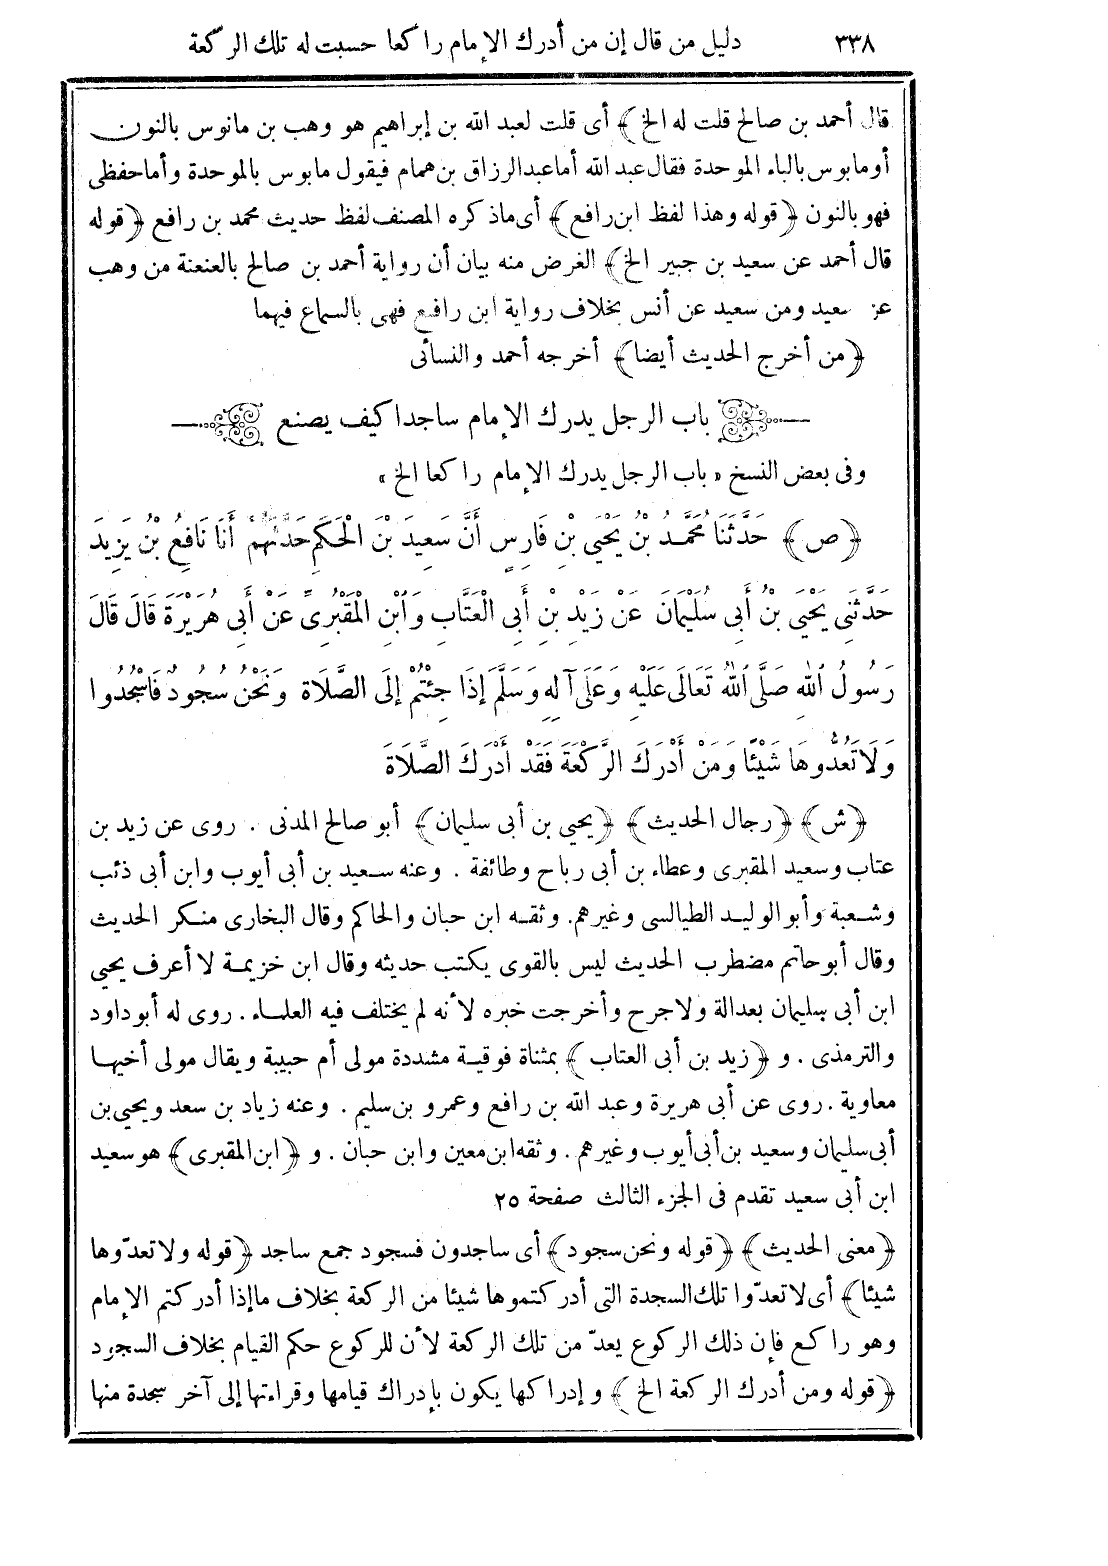 ٣٣٨ دليل من قال إن من أدرك الإمام راكعا حسبت له تلك الركعة
قال أحمد بن صالح قلت له الخ﴾ أى قلت لعبد الله بن إبراهيم هو وهب بن مانوس بالنون
أو مابوس بالباء الموحدة فقال عبد الله أما عبد الرزاق بن همام فيقول مابوس بالموحدة وأما حفظى
فهو بالنون ﴿قوله وهذا لفظ ابن رافع﴾ أى ماذكره المصنف لفظ حديث محمد بن رافع ﴿قوله
قال أحمد عن سعيد بن جبير الخ﴾ الغرض منه بيان أن رواية أحمد بن صالح بالعنعنة من وهب
عن سعيد ومن سعيد عن أنس بخلاف رواية ابن رافع فهى بالسماع فيهما
﴿من أخرج الحديث أيضا﴾ أخرجه أحمد والنسائى
باب الرجل يدرك الإمام ساجدا كيف يصنع
وفى بعض النسخ «باب الرجل يدرك الإمام راكعا الخ»
﴿ص﴾ حَدَّثَنَا مُحَمَّدُ بْنُ يَحْيَى بْنِ فَارِسٍ أَنَّ سَعِيدَ بْنَ الْحَكَمِ حَدَّثَهُمْ أَنَا نَافِعُ بْنُ يَزِيدَ
حَدَّثَنِى يَحْيَى بْنُ أَبِى سُلَيْمَانَ عَنْ زَيْدِ بْنِ أَبِى الْعَتَّابِ وَابْنِ الْمَقْبُرِىِّ عَنْ أَبِى هُرَيْرَةَ قَالَ قَالَ
رَسُولُ اللهِ صَلَّى اللهُ تَعَالَى عَلَيْهِ وَعَلَى آلِهِ وَسَلَّمَ إِذَا جِئْتُمْ إِلَى الصَّلَاةِ وَنَحْنُ سُجُودٌ فَاسْجُدُوا
وَلَا تَعُدُّوهَا شَيْئًا وَمَنْ أَدْرَكَ الرَّكْعَةَ فَقَدْ أَدْرَكَ الصَّلَاةَ
﴿ش﴾ ﴿رجال الحديث﴾ ﴿يحيى بن أبى سليمان﴾ أبو صالح المدنى . روى عن زيد بن
عتاب وسعيد المقبرى وعطاء بن أبى رباح وطائفة . وعنه سعيد بن أبى أيوب وابن أبى ذئب
وشعبة وأبو الوليد الطيالسى وغيرهم. وثقه ابن حبان والحاكم وقال البخارى منكر الحديث
وقال أبو حاتم مضطرب الحديث ليس بالقوى يكتب حديثه وقال ابن خزيمة لا أعرف يحيى
ابن أبى سليمان بعدالة ولا جرح وأخرجت خبره لأنه لم يختلف فيه العلماء . روى له أبو داود
والترمذى . و ﴿زيد بن أبى العتاب﴾ بمثناة فوقية مشددة مولى أم حبيبة ويقال مولى أخيها
معاوية . روى عن أبى هريرة وعبد الله بن رافع وعمرو بن سليم . وعنه زياد بن سعد ويحيى بن
أبى سليمان وسعيد بن أبى أيوب وغيرهم . وثقه ابن معين وابن حبان . و ﴿ابن المقبرى﴾ هو سعيد
ابن أبى سعيد تقدم فى الجزء الثالث صفحة ٢٥
﴿معنى الحديث﴾ ﴿قوله ونحن سجود﴾ أى ساجدون فسجود جمع ساجد ﴿قوله ولا تعدّوها
شيئا﴾ أى لا تعدّوا تلك السجدة التى أدركتموها شيئا من الركعة بخلاف ما إذا أدركتم الإمام
وهو راكع فإن ذلك الركوع يعدّ من تلك الركعة لأن للركوع حكم القيام بخلاف السجود
﴿قوله ومن أدرك الركعة الخ﴾ وإدراكها يكون بإدراك قيامها وقراءتها إلى آخر سجدة منها